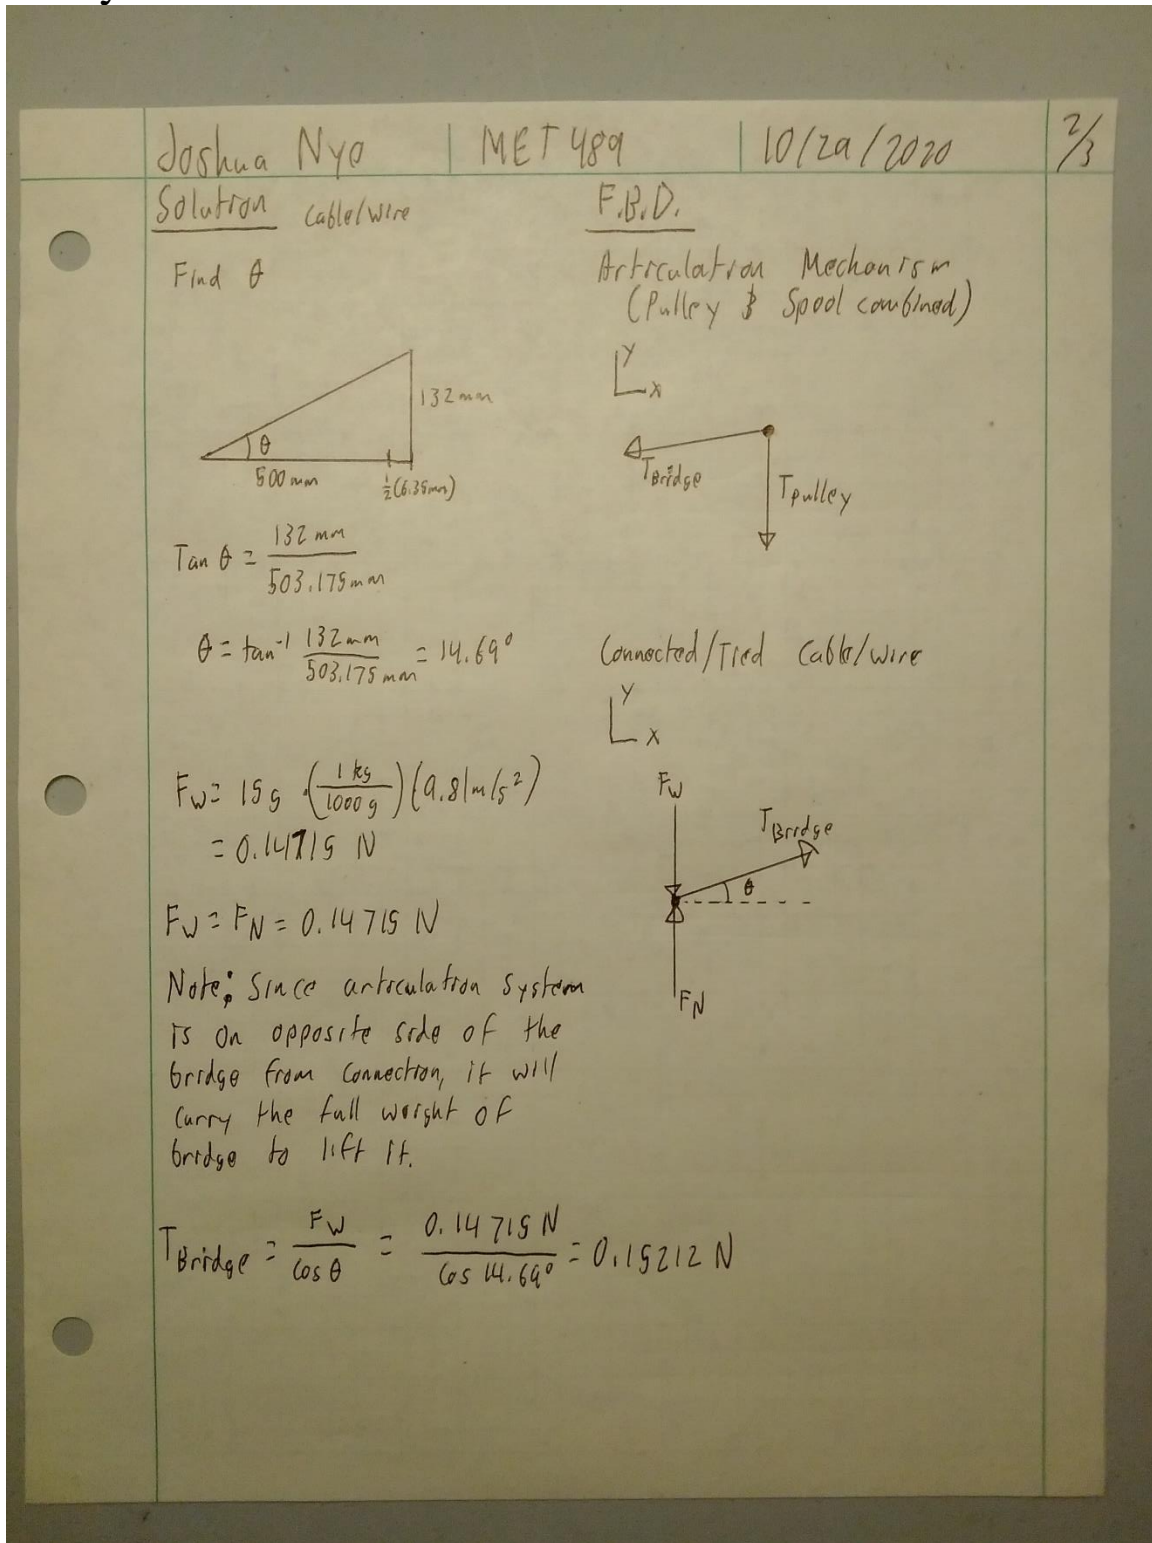 Joshua Nyo | MET 489 | 10/29/2020 2/3
Solution Cable/wire
Find θ
132 mm
θ
500 mm
½(6.35mm)
Tan θ = 132 mm / 503.175 mm
θ = tan⁻¹ 132 mm / 503.175 mm = 14.69°
F_W = 15g · (1 kg / 1000 g)(9.81 m/s²)
= 0.14715 N
F_W = F_N = 0.14715 N
Note: Since articulation system
is on opposite side of the
bridge from connection, it will
carry the full weight of
bridge to lift it.
T_Bridge = F_W / cos θ = 0.14715 N / cos 14.69° = 0.15212 N
F.B.D.
Articulation Mechanism
(Pulley & Spool combined)
Y
X
T_Bridge
T_pulley
Connected/Tied Cable/wire
Y
X
F_W
T_Bridge
θ
F_N